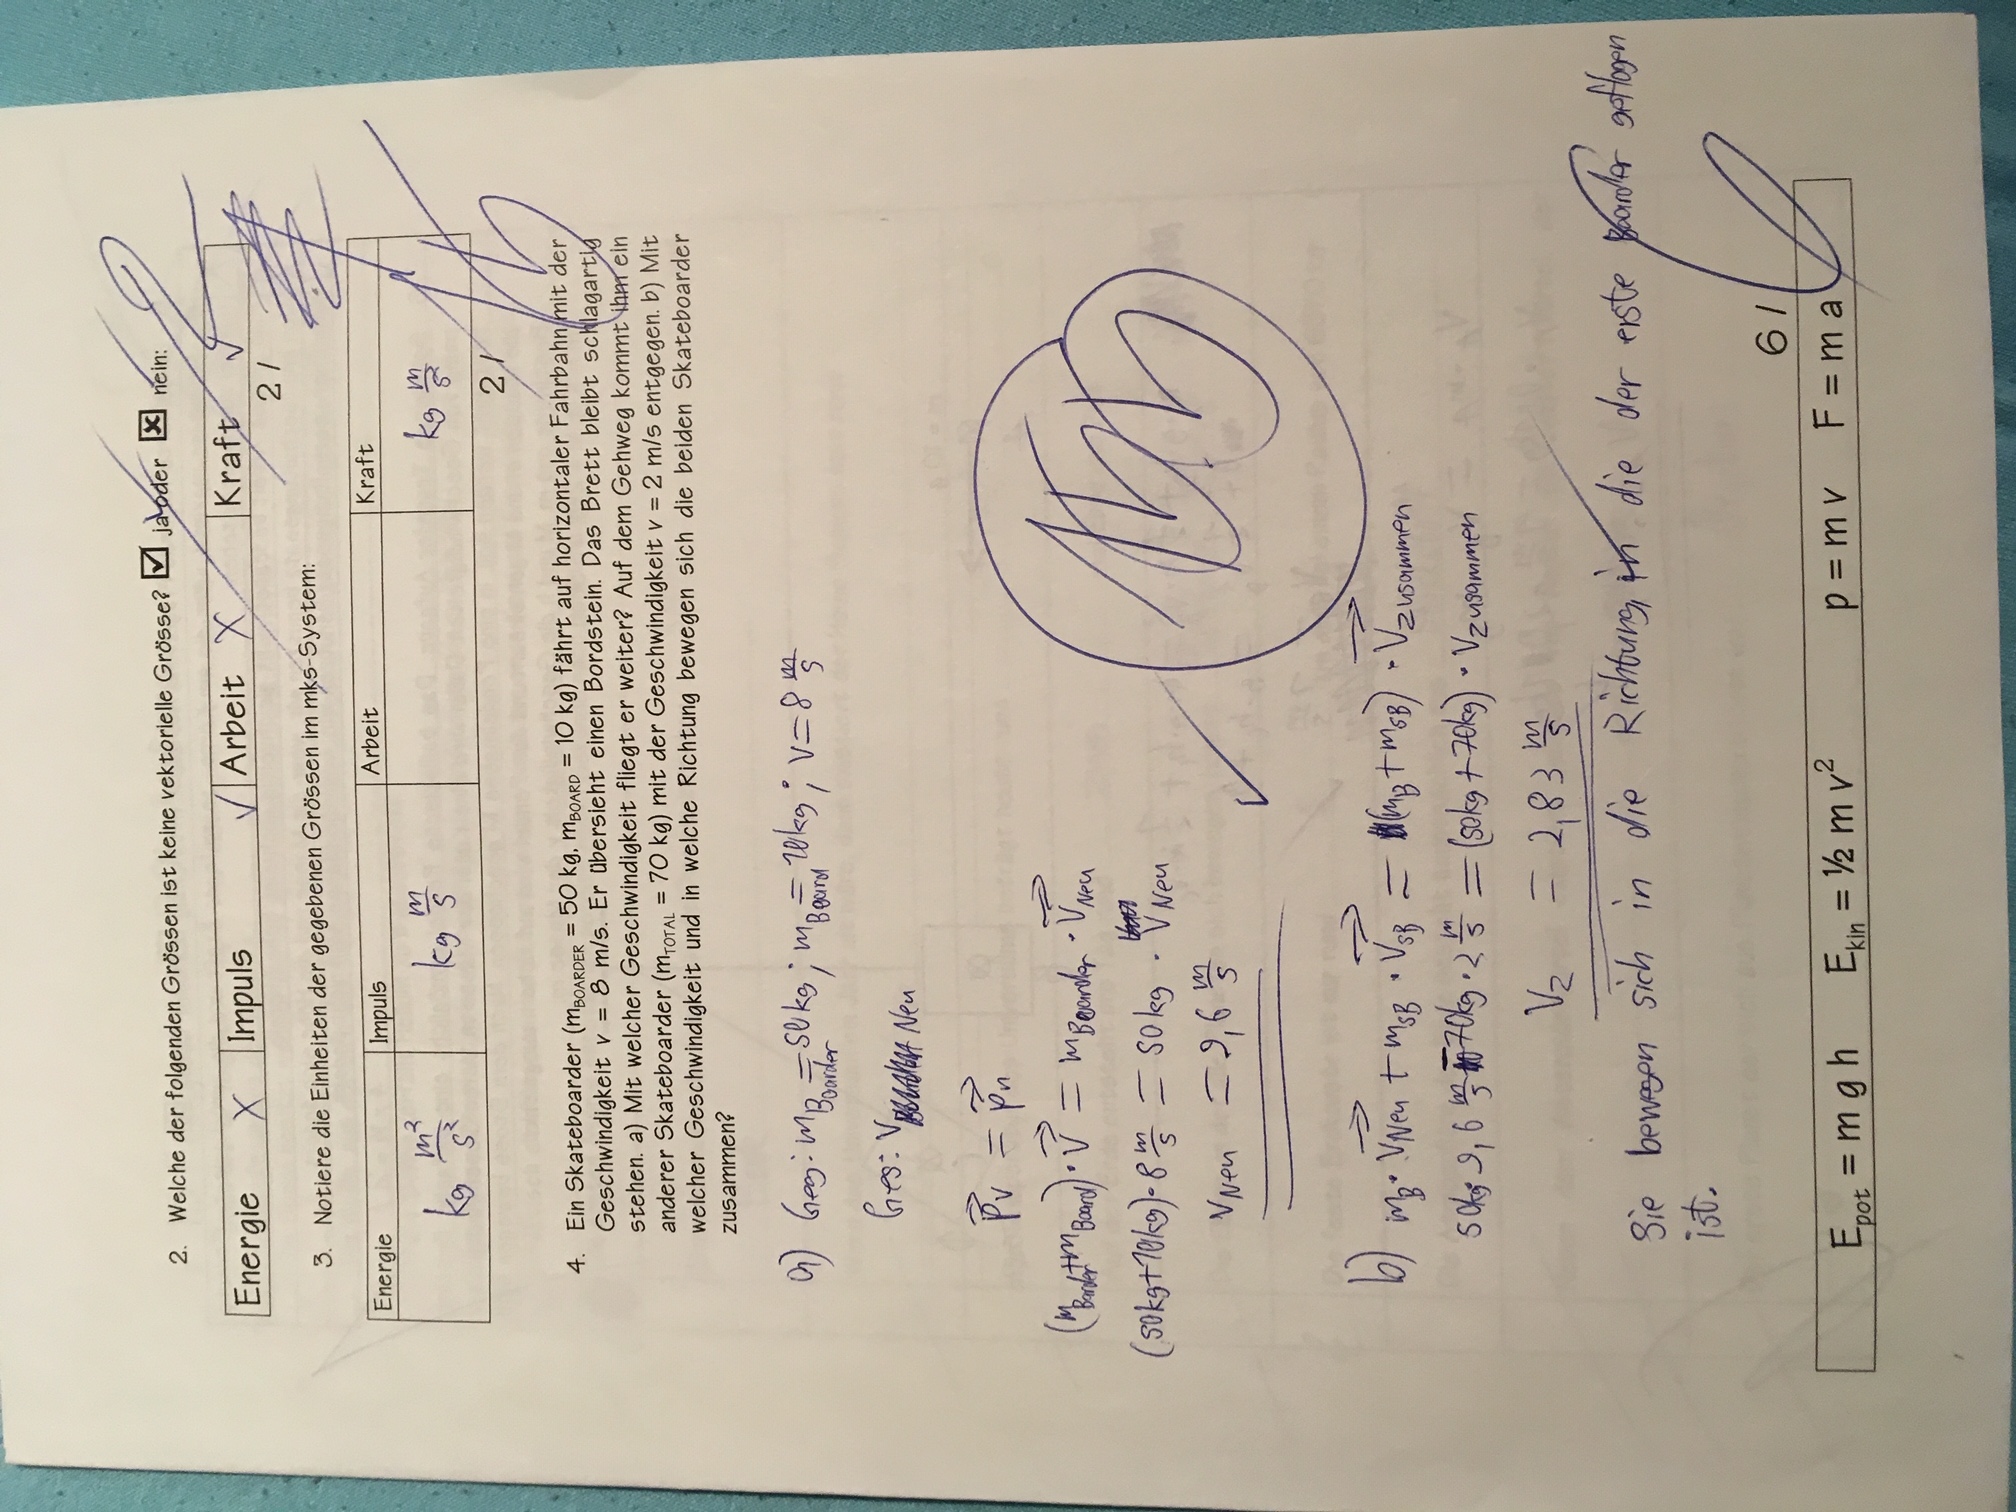 2. Welche der folgenden Grössen ist keine vektorielle Grösse? ☑ ja oder ☒ nein:
Energie X Impuls ✓ Arbeit X Kraft ✓
2 /
3. Notiere die Einheiten der gegebenen Grössen im mks-System:
Energie Impuls Arbeit Kraft
kg m²/s² kg m/s kg m/s²
2 /
4. Ein Skateboarder (mBOARDER = 50 kg, mBOARD = 10 kg) fährt auf horizontaler Fahrbahn mit der
Geschwindigkeit v = 8 m/s. Er übersieht einen Bordstein. Das Brett bleibt schlagartig
stehen. a) Mit welcher Geschwindigkeit fliegt er weiter? Auf dem Gehweg kommt ihm ein
anderer Skateboarder (mTOTAL = 70 kg) mit der Geschwindigkeit v = 2 m/s entgegen. b) Mit
welcher Geschwindigkeit und in welche Richtung bewegen sich die beiden Skateboarder
zusammen?
a) Geg: mBoarder = 50kg; mBoard = 10kg; v = 8 m/s
Ges: v Neu
p⃗v = p⃗n
(mBoarder + mBoard) · v⃗ = mBoarder · v⃗Neu
(50kg + 10kg) · 8 m/s = 50kg · vNeu
vNeu = 9,6 m/s
b) mB · v⃗Neu + mSB · v⃗SB = (mB + mSB) · v⃗zusammen
50kg · 9,6 m/s − 70kg · 2 m/s = (50kg + 70kg) · vzusammen
vz = 2,83 m/s
Sie bewegen sich in die Richtung, in die der erste Boarder geflogen
ist.
6 /
Epot = m g h Ekin = ½ m v² p = m v F = m a